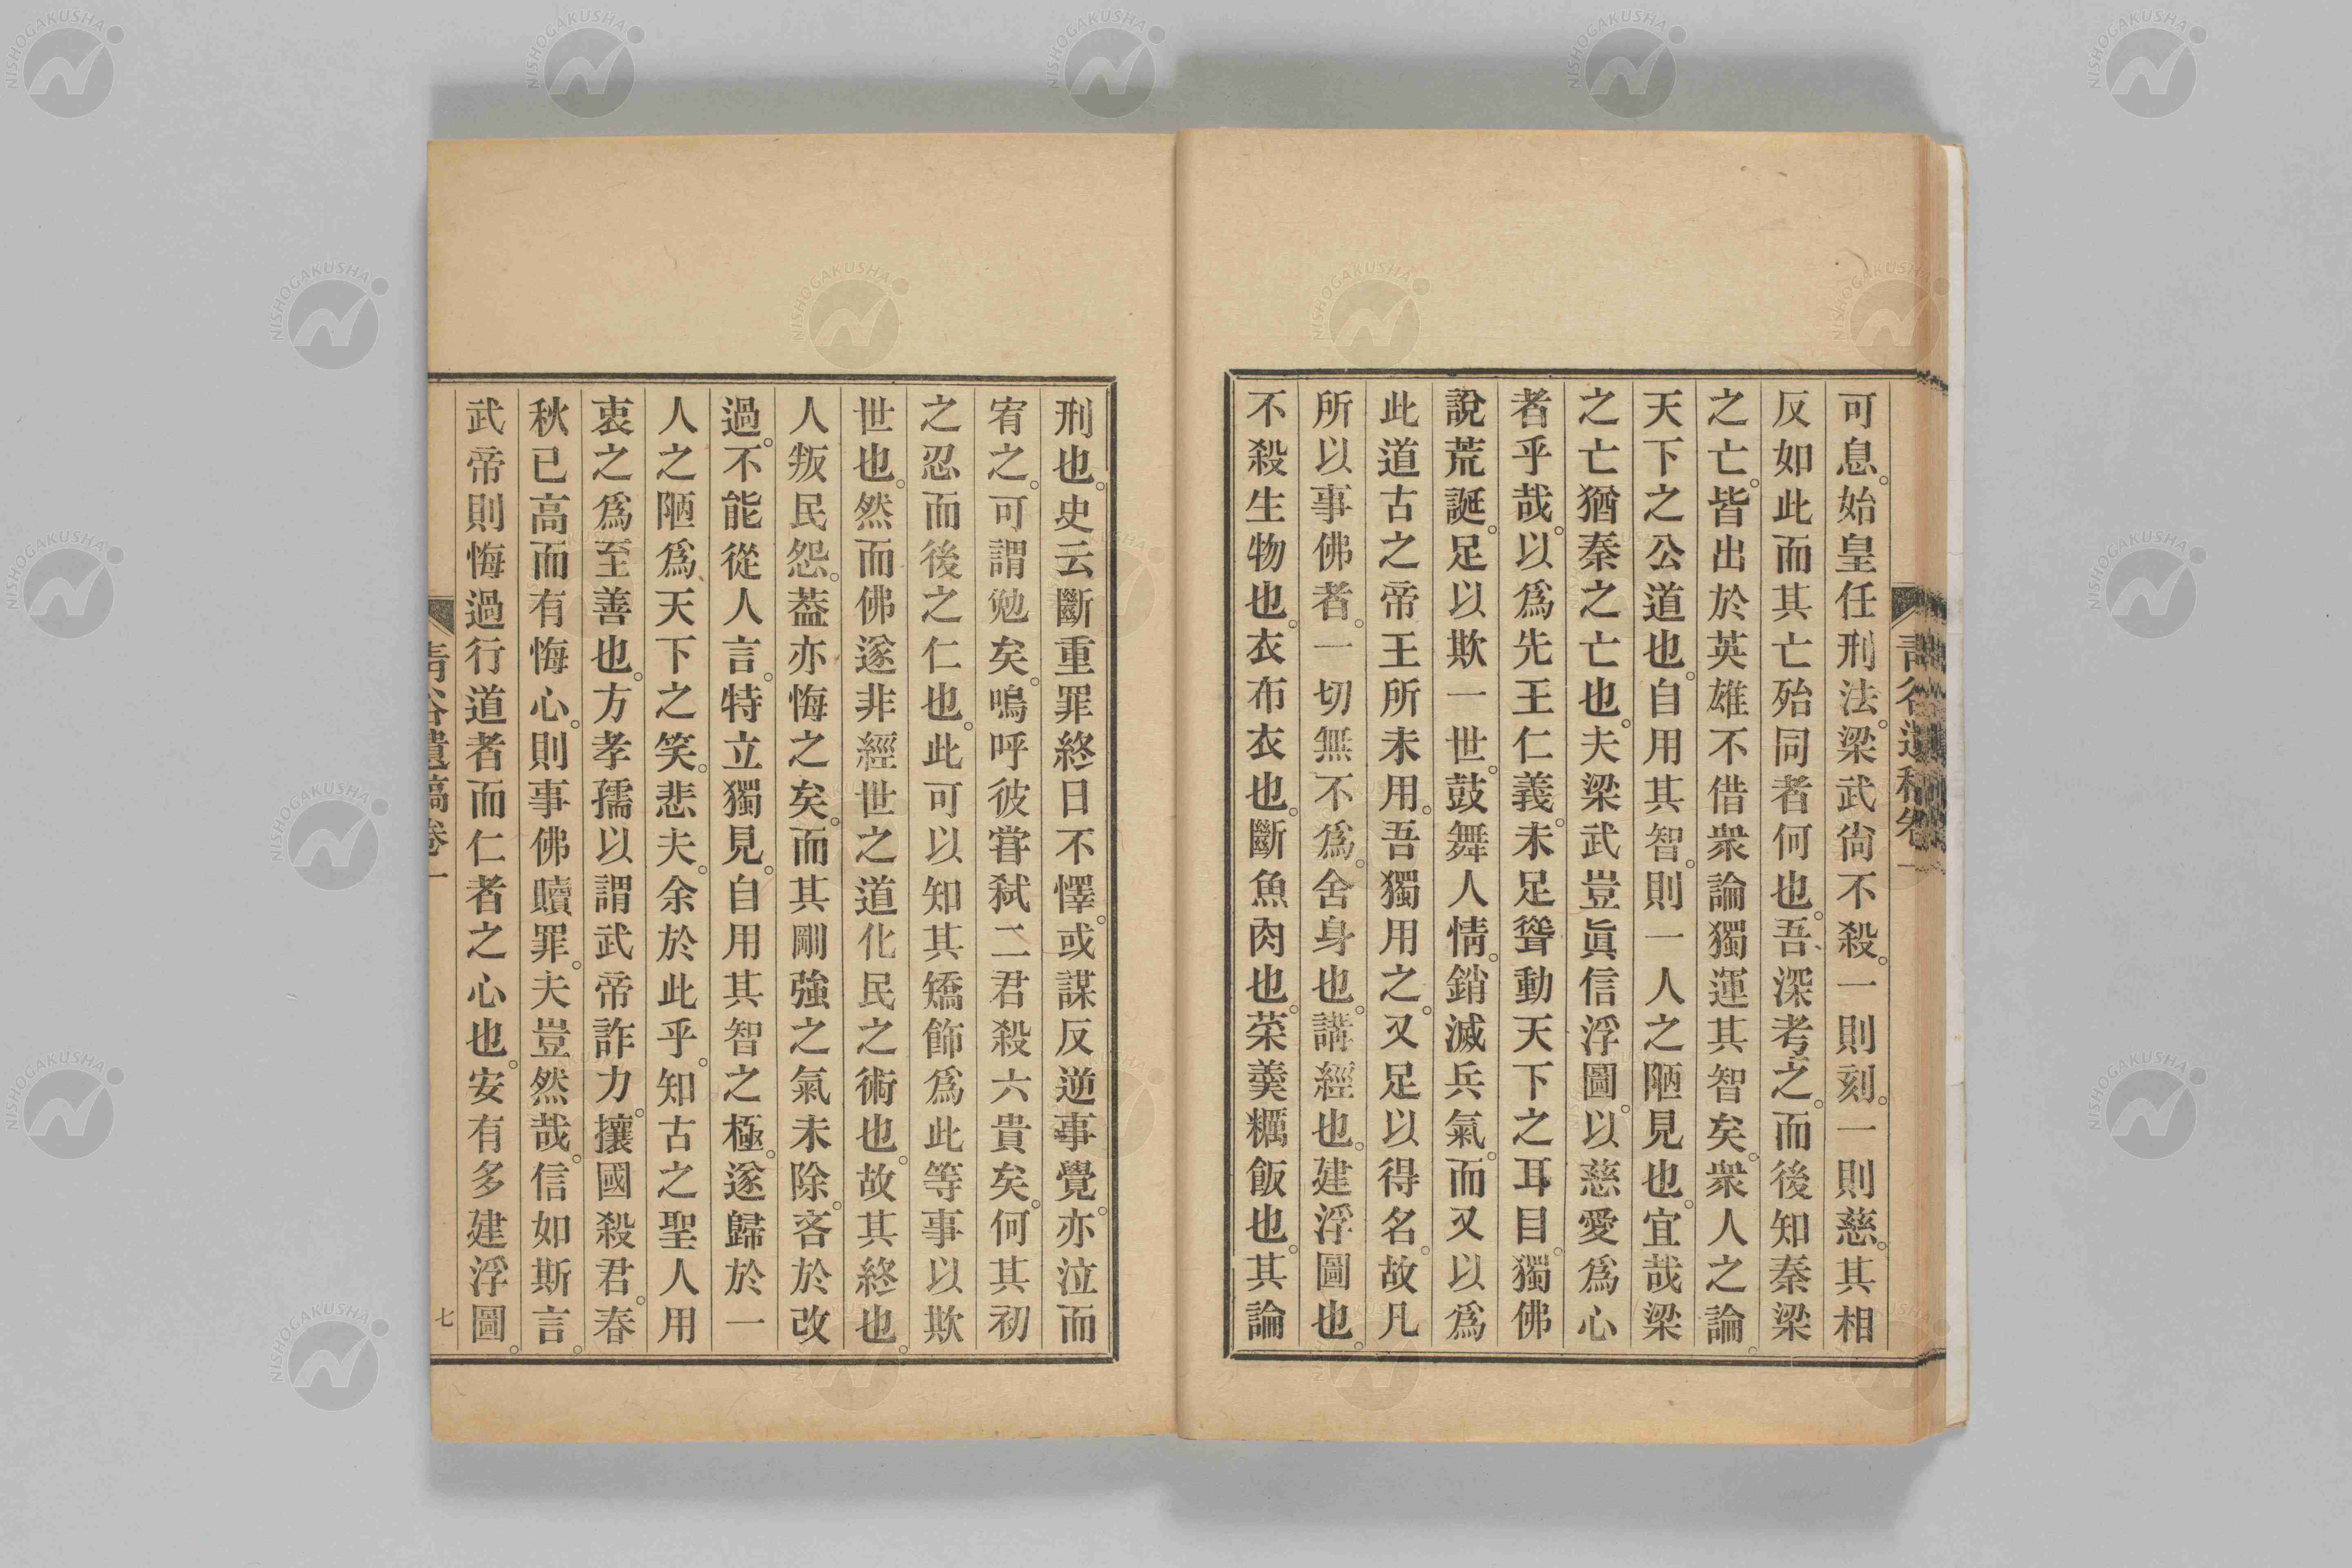 可息。始皇任刑法。梁武尙不殺。一則刻。一則慈。其相
反如此而其亡殆同者何也。吾深考之。而後知秦梁
之亡。皆出於英雄不借衆論獨運其智矣。衆人之論。
天下之公道也。自用其智。則一人之陋見也。宜哉梁
之亡猶秦之亡也。夫梁武豈眞信浮圖。以慈愛爲心
者乎哉。以爲先王仁義。未足聳動天下之耳目。獨佛
說荒誕。足以欺一世。鼓舞人情。銷滅兵氣。而又以爲
此道古之帝王所未用。吾獨用之。又足以得名。故凡
所以事佛者。一切無不爲。舍身也。講經也。建浮圖也。
不殺生物也。衣布衣也。斷魚肉也。菜羹糲飯也。其論
刑也。史云斷重罪終日不懌。或謀反逆事覺。亦泣而
宥之。可謂勉矣。嗚呼彼嘗弑二君殺六貴矣。何其初
之忍而後之仁也。此可以知其矯飾爲此等事以欺
世也。然而佛遂非經世之道化民之術也。故其終也。
人叛民怨。葢亦悔之矣。而其剛強之氣未除。吝於改
過。不能從人言。特立獨見。自用其智之極。遂歸於一
人之陋爲天下之笑。悲夫。余於此乎。知古之聖人用
衷之爲至善也。方孝孺以謂武帝詐力。攘國殺君。春
秋已高而有悔心。則事佛贖罪。夫豈然哉。信如斯言。
武帝則悔過行道者而仁者之心也。安有多建浮圖。
靑谷遺稿卷一
七